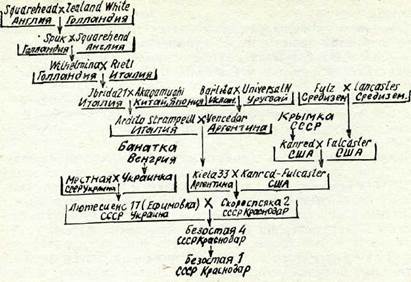 Squarehead x Zealand White
Англия Голландия
Spuk x Squarehend
Голландия Англия
Wilhelmina x Rieti
Голландия Италия
Jbrida 21 x Akagamughi Barletta x Universal II Fulz x Lancaster
Италия Китай, Япония Испан. Уругвай Средизем. Средизем.
Ardito Strampelli x Vencedor Крымка
Италия Аргентина СССР
Банатка Kanred x Fulcaster
Венгрия США США
Местная x Украинка Kiela 33 x Kanred-Fulcaster
СССР Украина Аргентина США
Лютесценс 17 (Ефимовка) x Скороспелка 2
СССР Украина СССР Краснодар
Безостая 4
СССР Краснодар
Безостая 1
СССР Краснодар